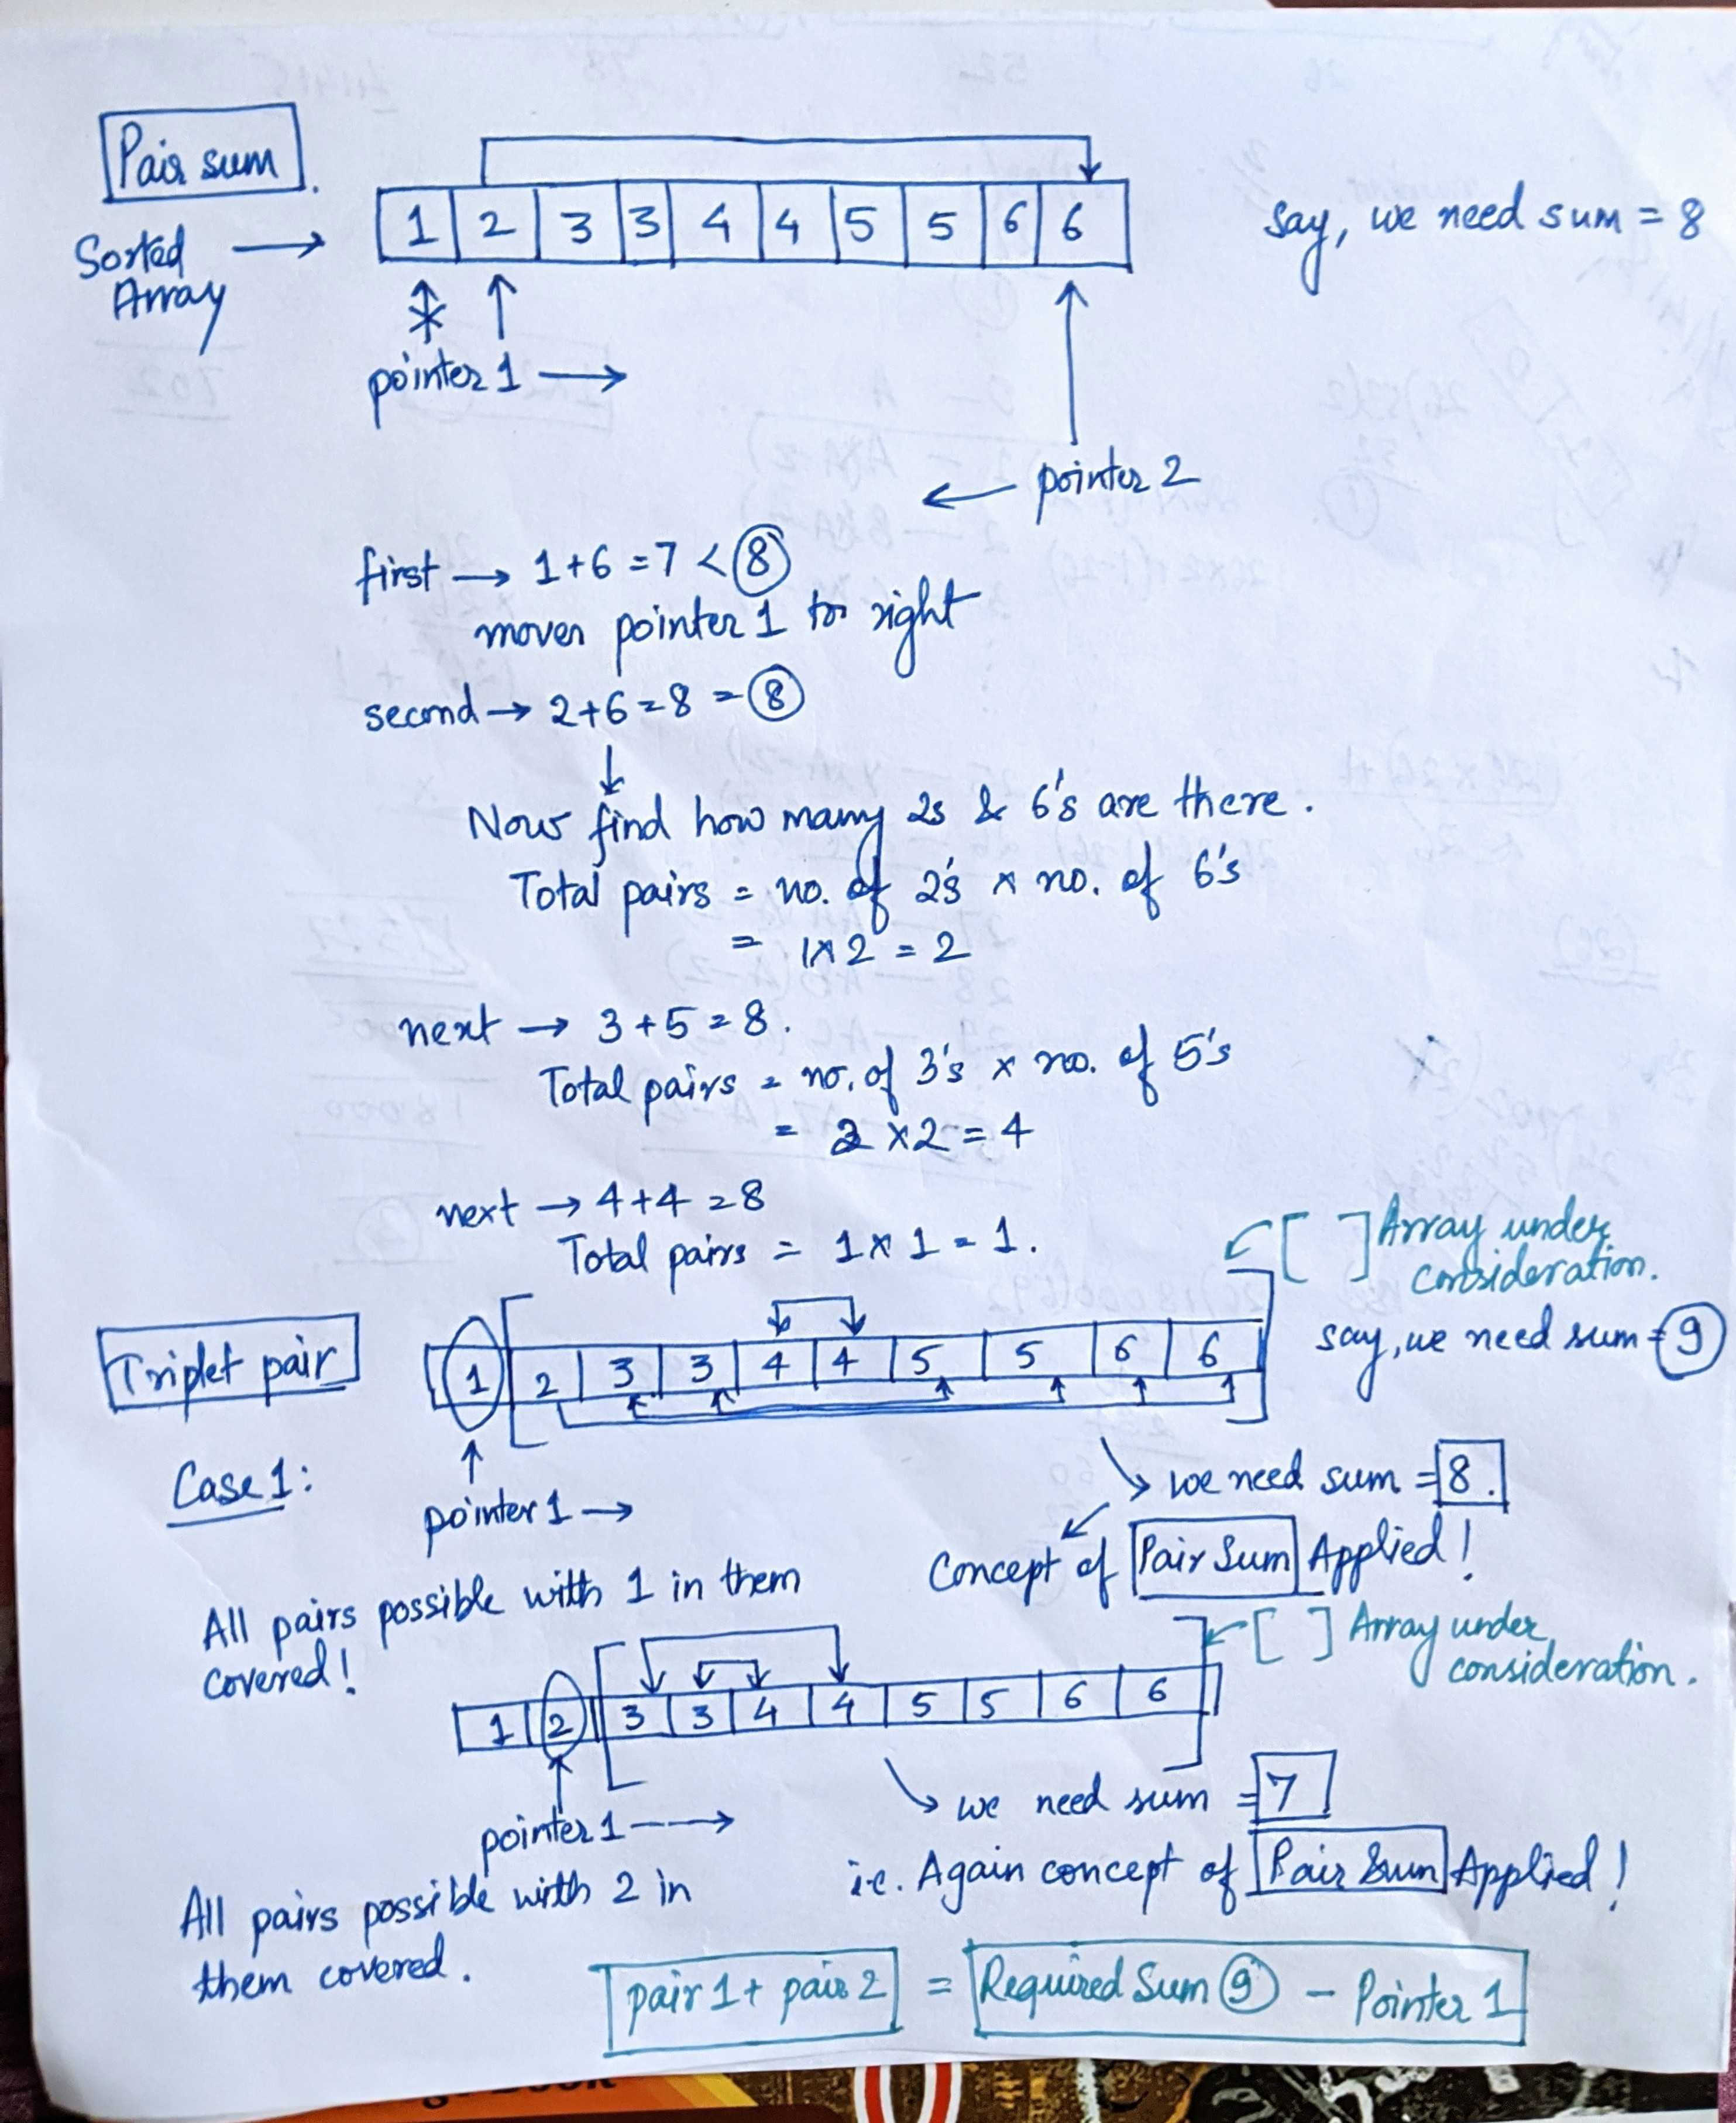 Pair sum
Sorted Array → 1 2 3 3 4 4 5 5 6 6
say, we need sum = 8
pointer 1 →
← pointer 2
first → 1+6 = 7 < 8
moven pointer 1 to right
second → 2+6 = 8 = 8
↓
Now find how many 2s & 6's are there.
Total pairs = no. of 2's × no. of 6's
= 1×2 = 2
next → 3+5 = 8.
Total pairs = no. of 3's × no. of 5's
= 2 ×2 = 4
next → 4+4 = 8
Total pairs = 1×1 = 1.
[ ] Array under
consideration.
Triplet pair
1 2 3 3 4 4 5 5 6 6
say, we need sum = 9
Case 1:
pointer 1 →
we need sum = 8.
Concept of Pair Sum Applied!
All pairs possible with 1 in them
covered!
[ ] Array under
consideration.
1 2 3 3 4 4 5 5 6 6
pointer 1 →
we need sum = 7
i.e. Again concept of Pair Sum Applied!
All pairs possible with 2 in
them covered.
pair 1 + pair 2 = Required Sum 9 − Pointer 1